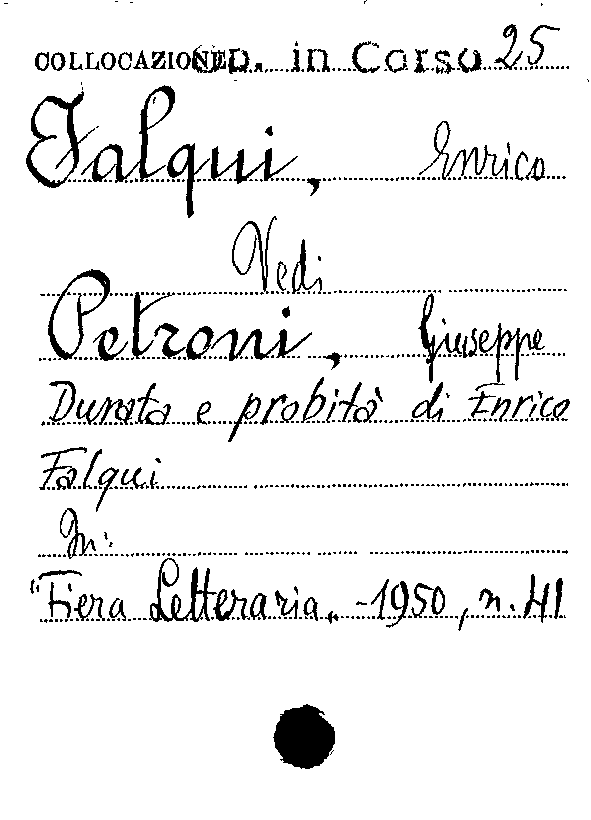 COLLOCAZIONE Op. in Corso 25
Falqui, Enrico
Vedi
Petroni, Giuseppe
Durata e probità di Enrico
Falqui
In:
"Fiera Letteraria„ - 1950, n. 41